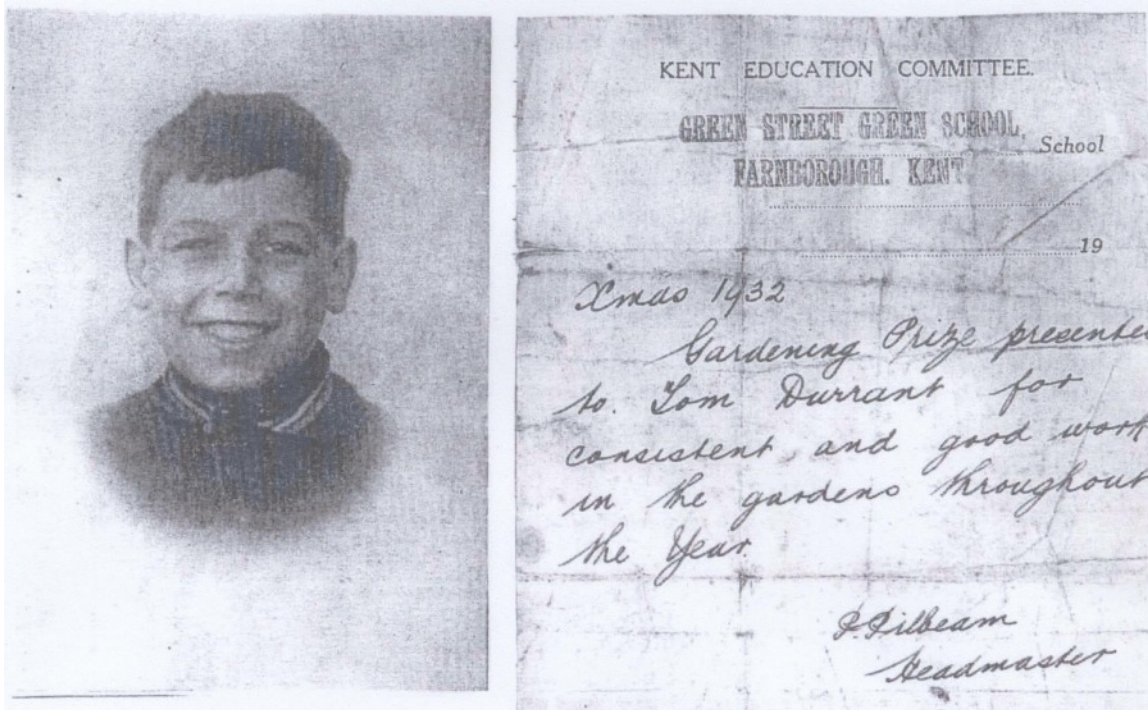 KENT EDUCATION COMMITTEE.
GREEN STREET GREEN SCHOOL,
School
FARNBOROUGH. KENT
19
Xmas 1932
Gardening Prize presente
to. Tom Durrant for
consistent and good work
in the gardens throughout
the Year.
P. Pilbeam
Headmaster